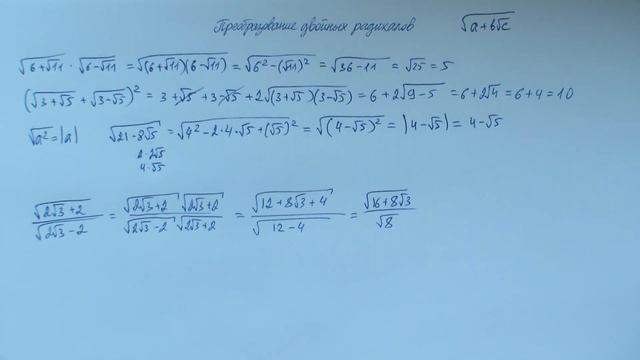 Преобразование двойных радикалов √(a+b√c)
√(6+√11) · √(6-√11) = √((6+√11)(6-√11)) = √(6²-(√11)²) = √(36-11) = √25 = 5
(√(3+√5) + √(3-√5))² = 3+√5+3-√5+2√((3+√5)(3-√5)) = 6+2√(9-5) = 6+2√4 = 6+4 = 10
√a² = |a| √(21-8√5) = √(4²-2·4·√5+(√5)²) = √((4-√5)²) = |4-√5| = 4-√5
2·2√5
4·√5
√(2√3+2) / √(2√3-2) = √(2√3+2) √(2√3+2) / √(2√3-2) √(2√3+2) = √(12+8√3+4) / √(12-4) = √(16+8√3) / √8